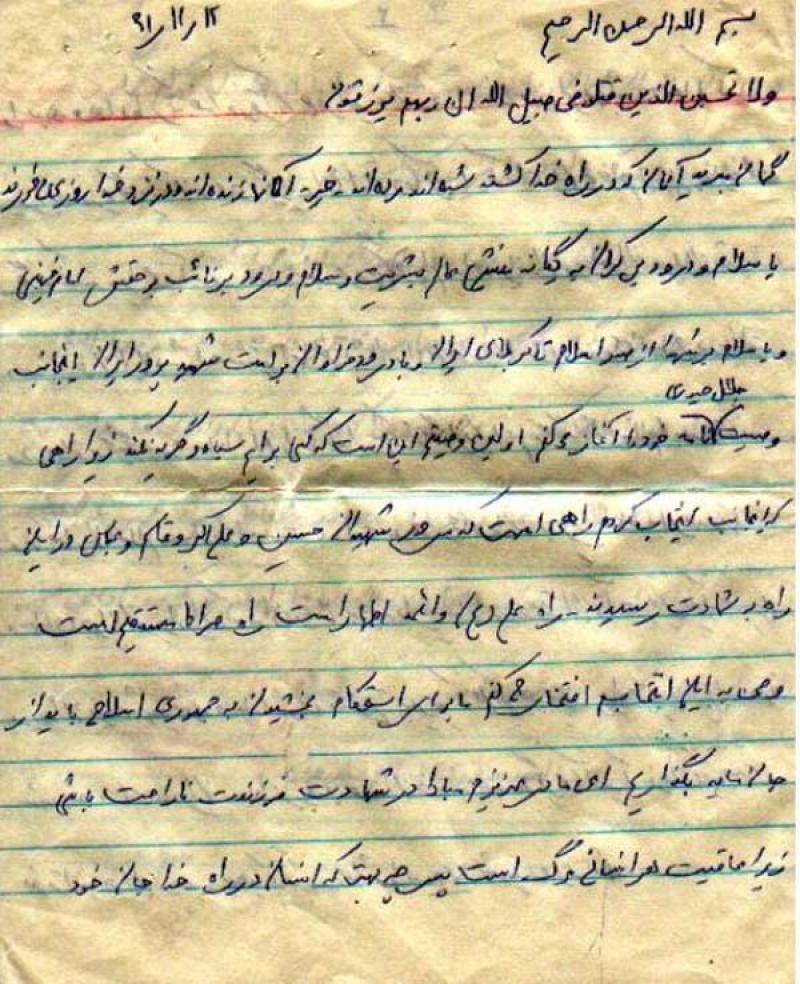 بسم الله الرحمن الرحیم ۶۱/۱۱/۱۲
ولا تحسبن الذین قتلو فی سبیل الله ان ربهم یوزقون
گمان مبرید آنان که در راه خدا کشته شده‌اند مرده‌اند ـ خیر ـ آنها زنده‌اند و در نزد خدا روزی می‌خورند
با سلام و درود بی‌کران به یگانه منجی عالم بشریت و سلام و درود بر نائب بر حقش امام خمینی
و با سلام بر شهدا از صدر اسلام تا کربلای ایران و با درود فراوان بر امت شهید پرور ایران اینجانب
جلال حیدری
وصیت نامه خود را آغاز میکنم اولین وصیتم این است که کسی برایم سیاه و گریه نکند زیرا راهی
که اینجانب انتخاب کردم راهی است که سرور شهیدان حسین و علی اکبر و قاسم و عباس در این
راه به شهادت رسیدند ـ راه علی (ع) و ائمه اطهار است راه صراط مستقیم است
و من به این انتخابم افتخار می کنم ما برای استحکام بخشیدن به جمهوری اسلامی باید از
جان مایه بگذاریم ای مادر عزیزم مبادا در شهادت فرزندت ناراحت باشی
زیرا عاقبت هر انسانی مرگ است پس چه بهتر که انسان در راه خدا جان خود